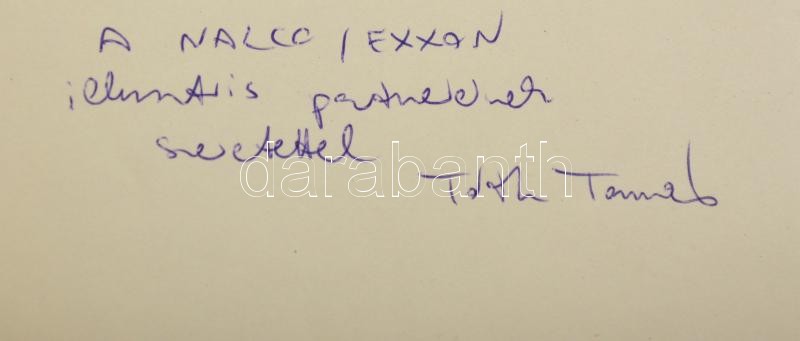 A NALCO / EXXON
partnerének
szeretettel
Tóth Tamás
darabanth